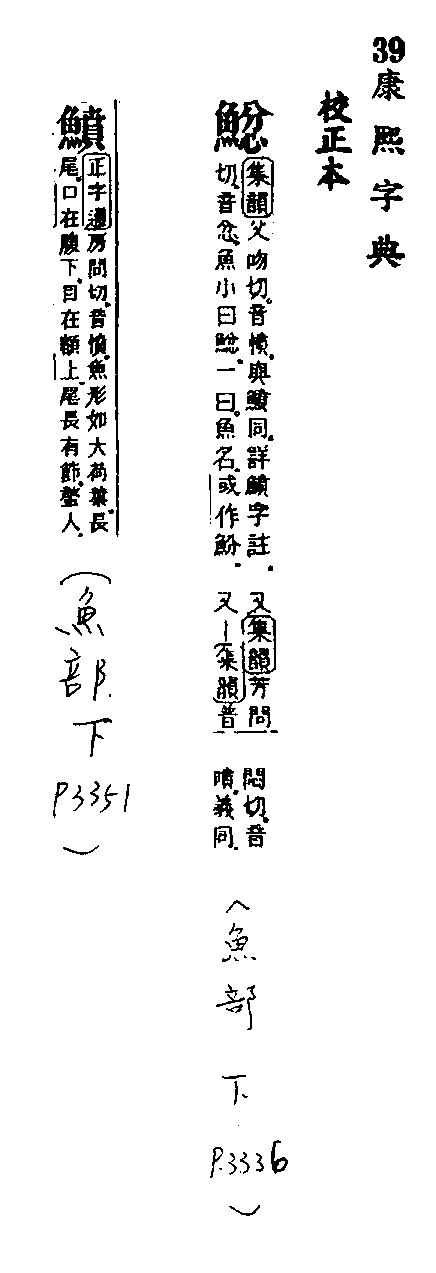 39康熙字典
校正本
集韻父吻切。音憤。與鱝同。詳鱝字註。 又集韻芳問
切。音忿。魚小曰 一曰。魚名。或作魵。 又集韻普
悶切。音
噴。義同。
(魚部 下 P.3336)
鱝
正字通房問切。音憤。魚形如大荷葉。長
尾。口在腹下。目在額上。尾長有節。螫人。
(魚部下 P3351)